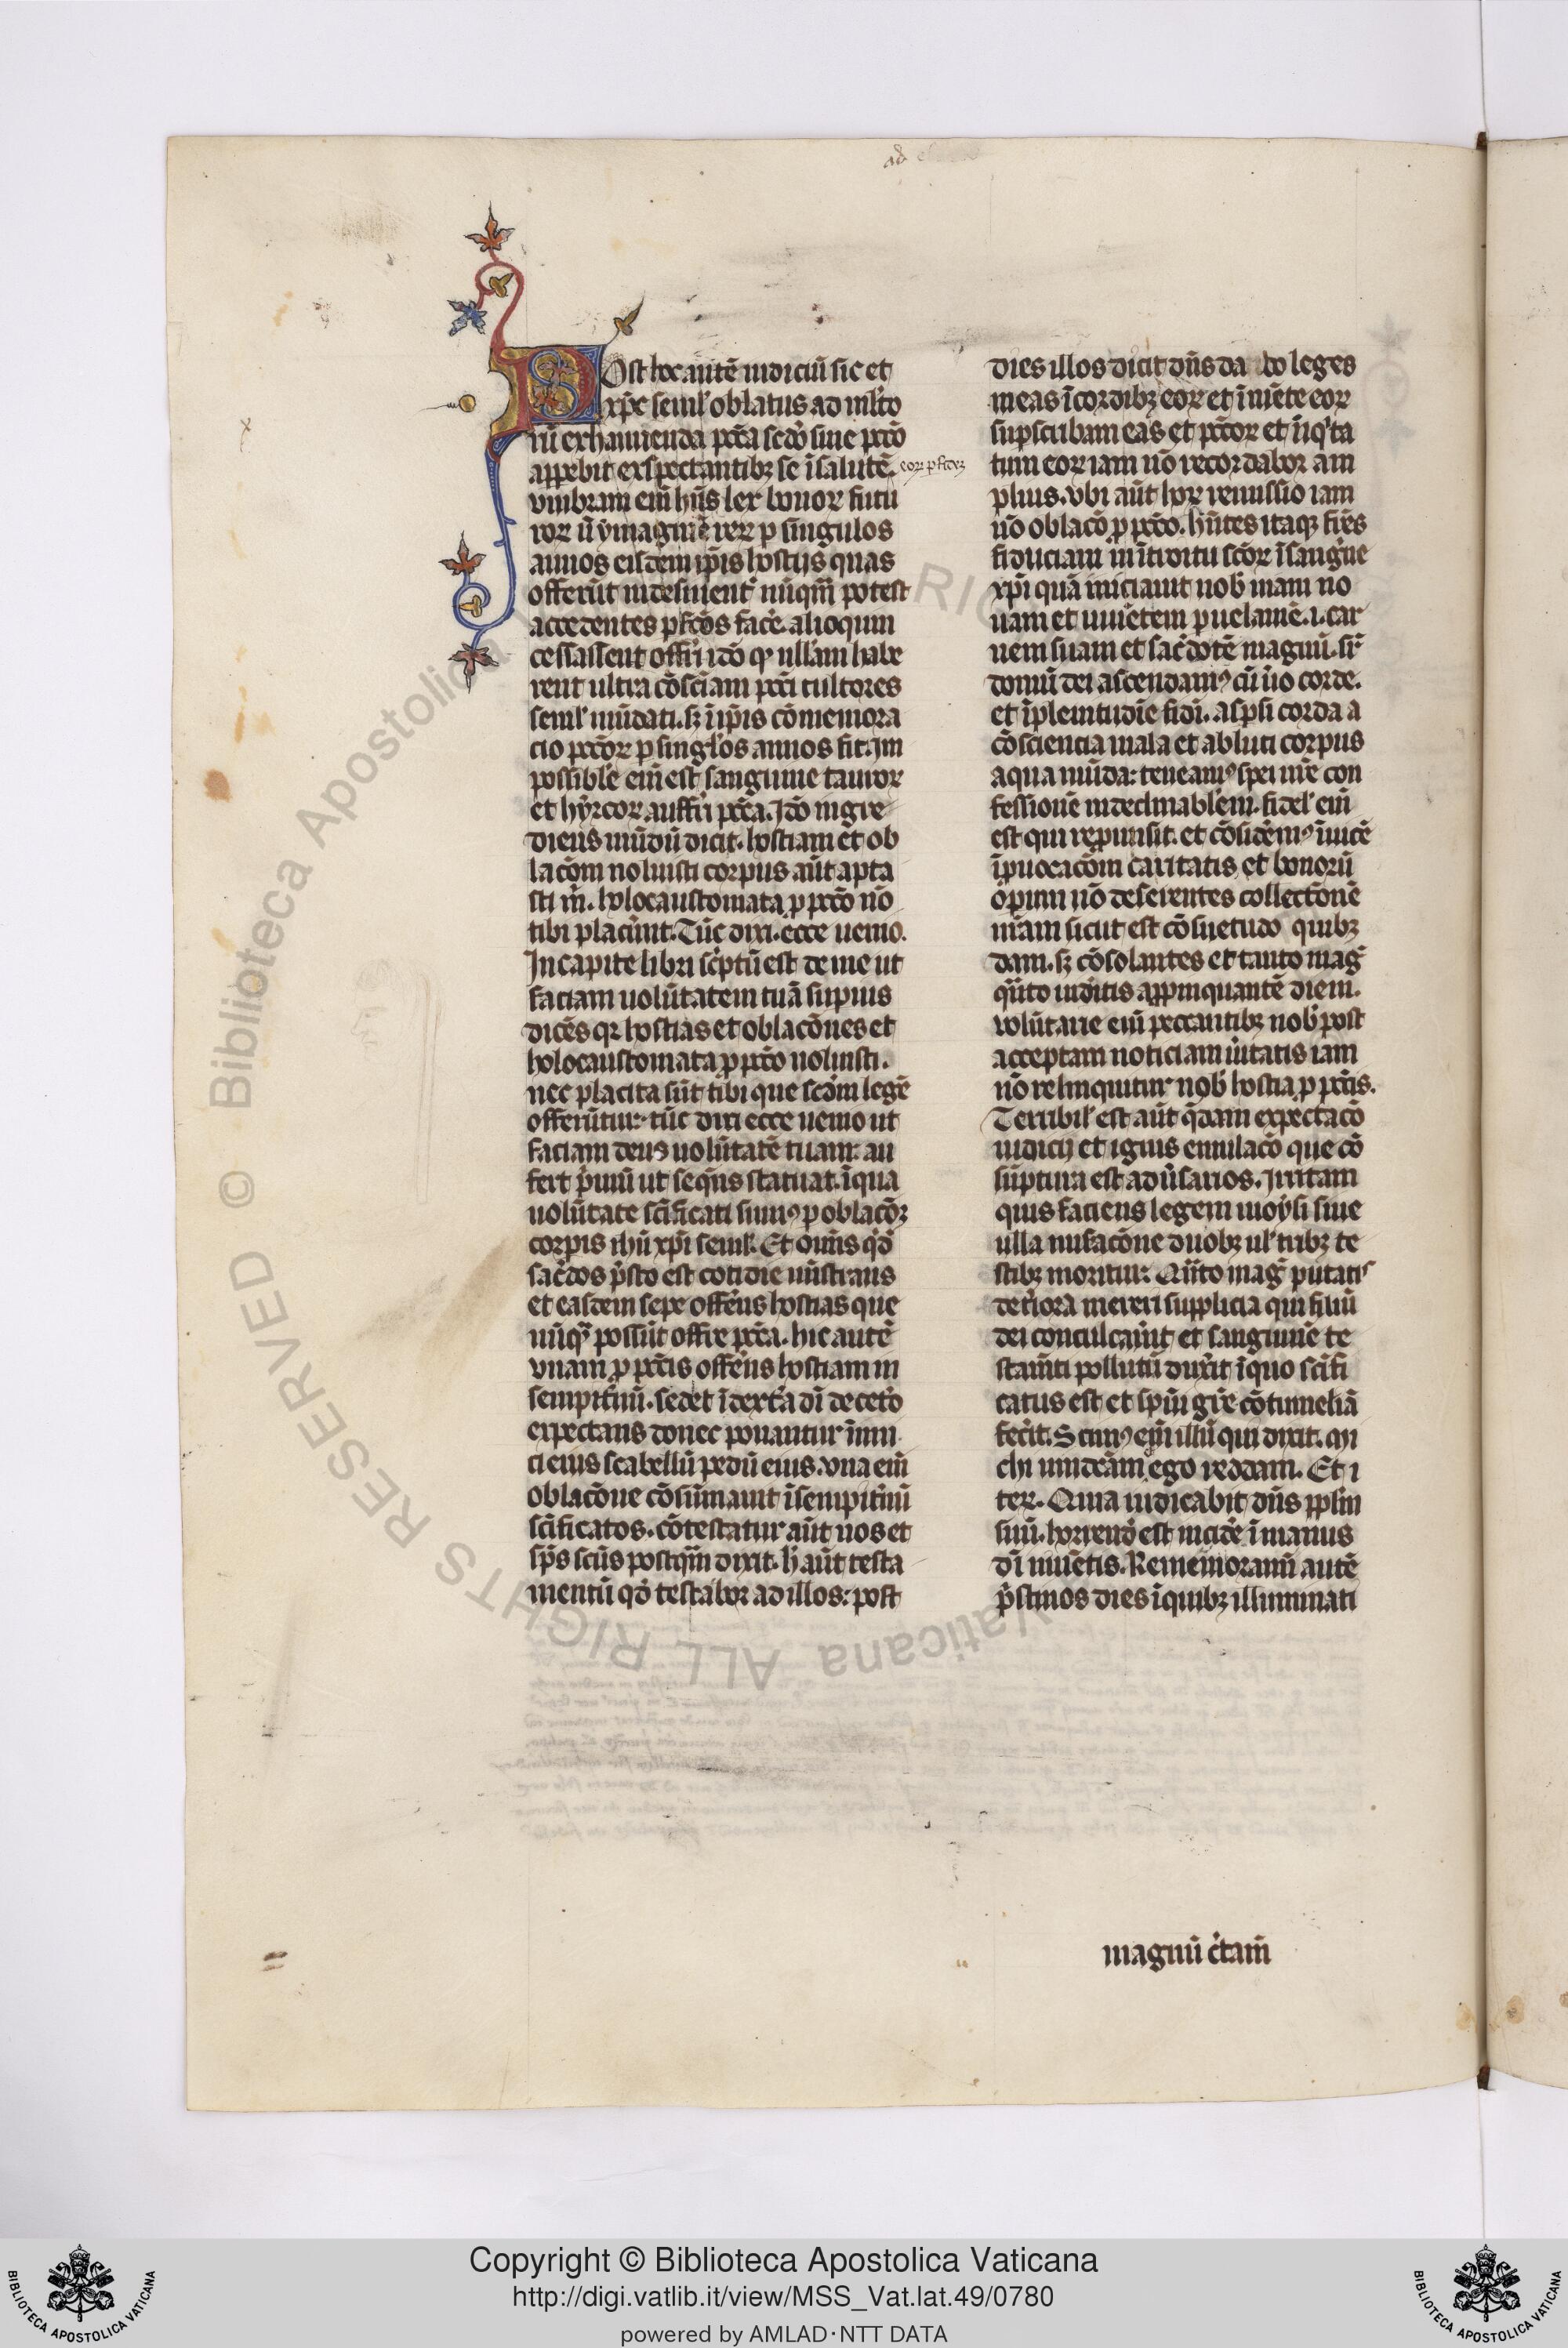 ad
Post hoc autē iudiciū sic et
xp̄c semł oblatus ad mlto
rū exhaurienda pctā scdo sine pctō
apprebit exspectantibꝫ se ī salutē. eorꝝ perfectꝫ
vmbram em̄ hn̄s lex bonoꝝ futu
roꝝ n̄ ymaginē reꝝ p singulos
annos eisdem ip̄is hostijs quas
offerūt indesinent̄ nūqm̄ potest
accedentes pfcōs facē. alioquin
cessassent offerri idō qꝛ nullam habe
rent ultra cōsciam pcti cultores
semł mūdati. sꝫ ī ip̄is cōmemora
cio pctōꝝ p singlos annos fit. Im
possible em̄ est sanguine tauroꝝ
et hyrcoꝝ auffri pctā. Idō ingre
diens mūdū dicit. hostiam et ob
lacōm noluisti corpus aūt apta
sti m̄. holocaustomata p pctō nō
tibi placūnt. Tūc dixi. ecce uenio.
In capite libri scͥptū est de me ut
faciam uolūtatem tuā supius
dicēs qꝛ hostias et oblacōnes et
holocaustomata p pctō noluisti.
nec placita sūt tibi que scdm legē
offerūtur. tūc dixi ecce uenio ut
faciam deus uolūtatē tuam. au
fert pͥmū ut seqn̄s statuat. ī qua
uolūtate scīficati sumꝰ p oblacōꝫ
corpis ihū xp̄i semł. Et om̄is qͥdē
sac̄dos p̄sto est cotidie mīstrans
et easdem sepe offerēns hostias que
nūqꝫ possūt offerre pctā. hic autē
vnam p pctīs offerēns hostiam in
sempit̄nū. sedet ī dextͣa dī de cetͤo
expectans donec ponantur īimi
ci eius scabellū pedū eius. vna em̄
oblacōne cōsūmauit ī sempit̄nū
scīficatos. cōtestatur aūt nos et
sp̄s scūs postqm̄ dixit. h̄ aūt testa
mentū qd̄ testabor ad illos: post
dies illos dicit dn̄s da bo leges
meas ī cordibꝫ eoꝝ et ī mēte eoꝝ
supscͥbam eas et pctōꝝ et īiqͥta
tum eoꝝ iam nō recordabor am
plius. vbi aūt hoꝝ remissio iam
nō oblacō p pctō. hn̄tes itaqꝫ fr̄es
fiduciam in ītroitu scōꝝ ī sangͥne
xp̄i quā iniciauit nob̄ uiam no
uam et uiuētem p uelamē. i. car
nem suam et sac̄dotē magnū. sr̄
domū dei ascendamꝰ cū ūo corde.
et ī plenitudīe fidi. aspsi corda a
cōsciencia mala et abluti corpus
aqua mūda: teneamꝰ spei nr̄e con
fessionē indeclinablem. fidel' em̄
est qui repmisit. et cōsidēmꝰ ī uicē
ī puocacōm caritatis et bonorū
opum nō deserentes collectōnē
nr̄am sicut est cōsuetudo quibꝫ
dam. sꝫ cōsolantes et tanto magͥ
qn̄to uiditis appinquantē diem.
volūtarie em̄ peccantibꝫ nob̄ post
acceptam noticiam ūitatis iam
nō relinquitur nob̄ hostia p pctīs.
Terribil' est aūt qͣdam expectacō
iudicij et ignis emulacō que cō
sūptura est adūsarios. Irritam
quis faciens legem moysi sine
ulla misacōne duobꝫ ul' tribꝫ te
stibꝫ moritur. Qn̄to magͥ putatis
deteriora mereri supplicia qui filiū
dei conculcaūit et sanguinē te
stam̄ti pollutū duxit ī quo scīfi
catus est et sp̄ui gr̄e cōtumeliā
fecit. Scimꝰ em̄ illū qui dixit. mi
chi uindcām ego reddam. Et i
teꝝ. Quia iudicabit dn̄s pplm
suū. horrendū est incidē ī manus
dī uiuētis. Rememoramī autē
pͥstinos dies ī quibꝫ illuminati
magnū c̄tam̄
RIGHTS RESERVED © Biblioteca Apostolica Vaticana ALL RIGHTS
Copyright © Biblioteca Apostolica Vaticana
http://digi.vatlib.it/view/MSS_Vat.lat.49/0780
powered by AMLAD·NTT DATA
BIBLIOTECA APOSTOLICA VATICANA
BIBLIOTECA APOSTOLICA VATICANA